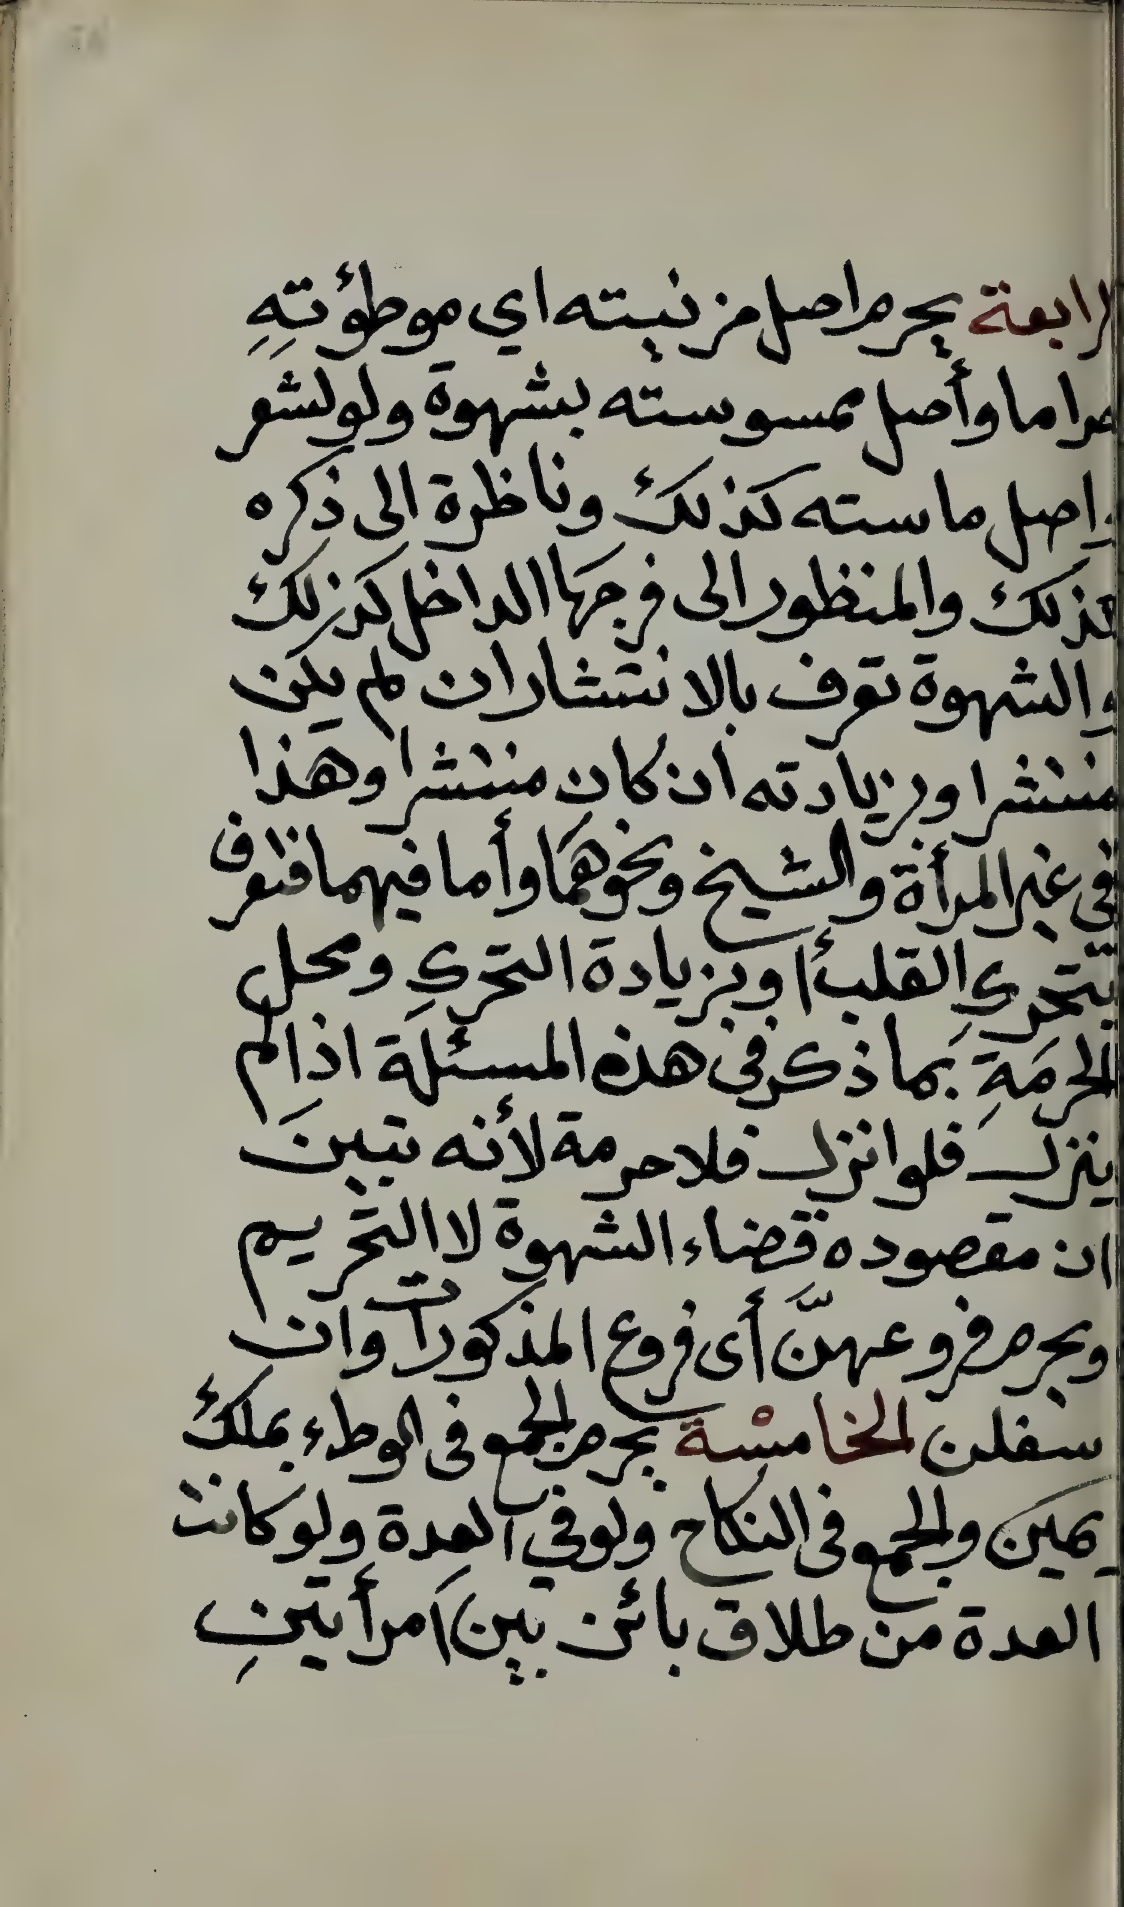 الرابعة يحرم اصل مزنيته اي موطؤته
حراما وأصل ممسوسته بشهوة ولو لشعر
واصل ماسته كذلك وناظرة الى ذكره
كذلك والمنظور الى فرجها الداخل كذلك
والشهوة تعرف بالانتشار ان لم يكن
منتشرا وبزيادته ان كان منتشرا وهذا
في غير المرأة والشيخ ونحوهما وأما فيهما فتعرف
بتحري القلب أو بزيادة التحري ومحل
الحرمة بما ذكر في هذه المسئلة اذا لم
ينزل فلو انزل فلا حرمة لأنه تبين
ان مقصوده قضاء الشهوة لا التحريم
ويحرم فروعهنّ أى فروع المذكورات وان
سفلن الخامسة يحرم الجمع فى الوطء بملك
يمين والجمع فى النكاح ولو في العدة ولو كانت
العدة من طلاق بائن بين امرأتين